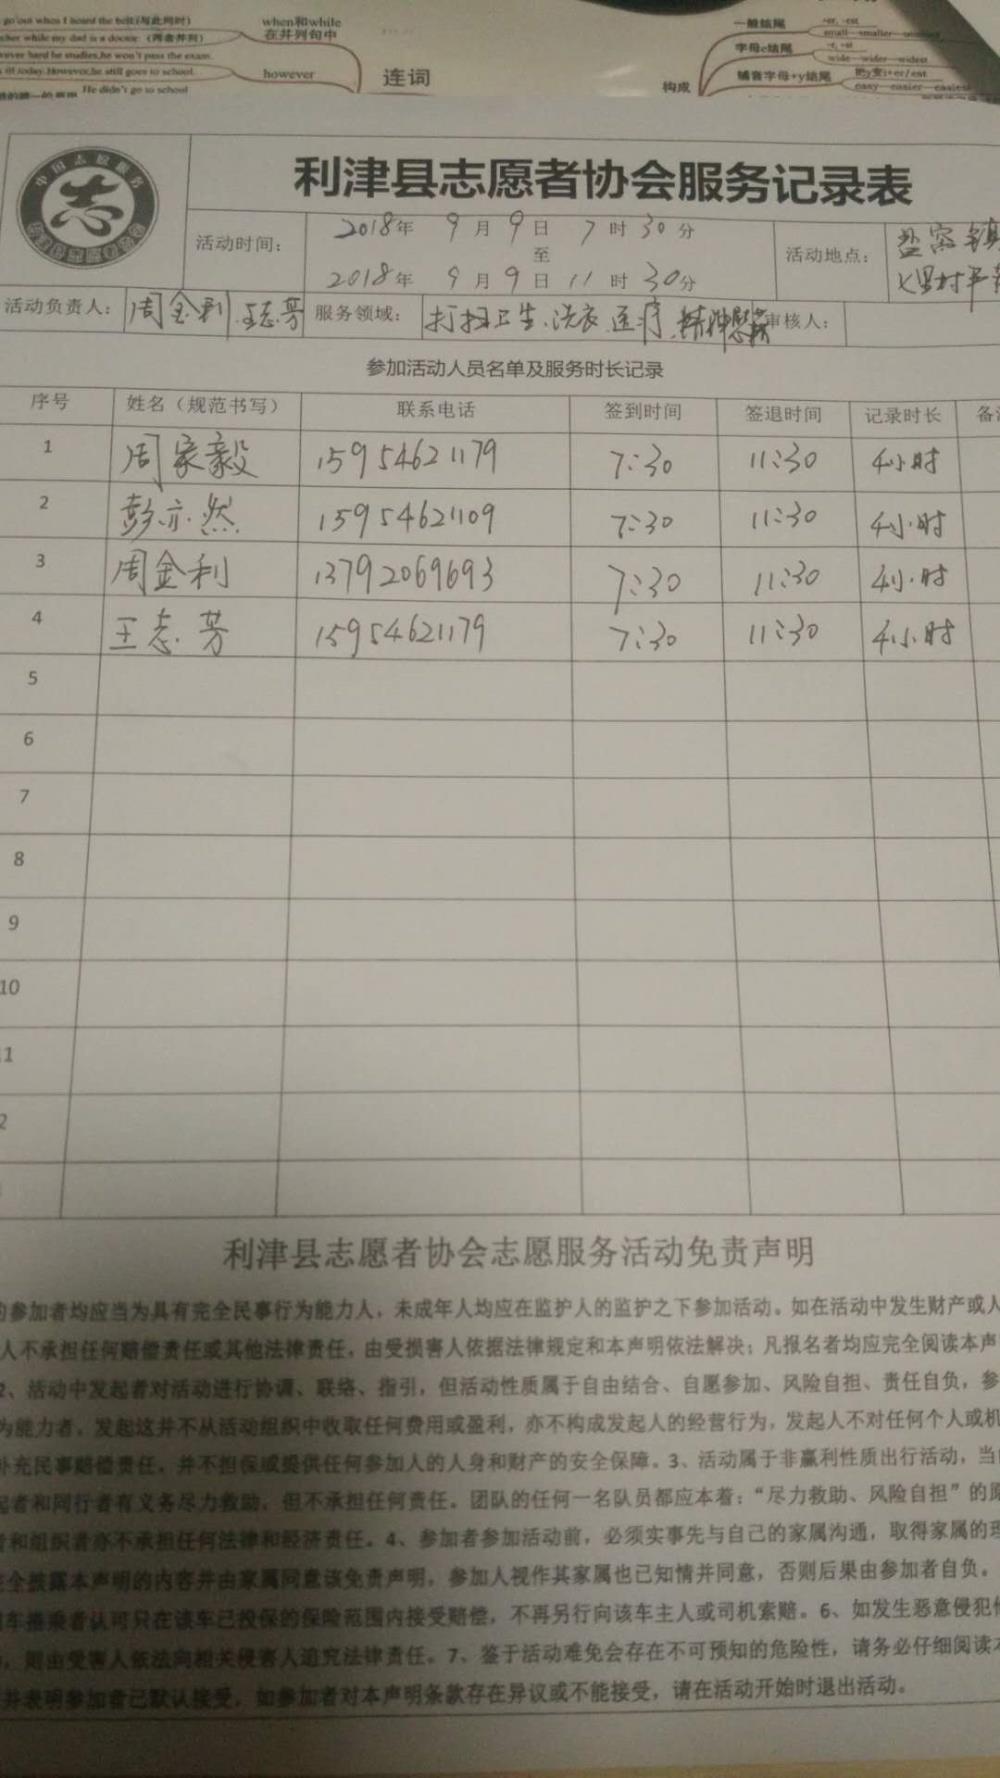 go out when I heard the bell(与此同时)
when和while
在并列句中
however
连词
He didn't go to school
构成
一般结尾
字母e结尾
辅音字母+y结尾
wide—wider—widest
easy—easier—easiest
中国志愿服务
志
利津县志愿者协会服务记录表
活动时间：
2018年 9月 9日 7时 30分
至
2018年 9月 9日 11时 30分
活动地点：
盐窝镇
七里村
活动负责人：
周金利 王志芳
服务领域：
打扫卫生、洗衣、医疗、精神慰藉
审核人：
参加活动人员名单及服务时长记录
序号 姓名（规范书写） 联系电话 签到时间 签退时间 记录时长 备
1 周家毅 15954621179 7:30 11:30 4小时
2 彭亦然 15954621109 7:30 11:30 4小时
3 周金利 13792069693 7:30 11:30 4小时
4 王志芳 15954621179 7:30 11:30 4小时
5
6
7
8
9
10
1
2
利津县志愿者协会志愿服务活动免责声明
的参加者均应当为具有完全民事行为能力人，未成年人均应在监护人的监护之下参加活动。如在活动中发生财产或人
人不承担任何赔偿责任或其他法律责任，由受损害人依据法律规定和本声明依法解决；凡报名者均应完全阅读本声
2、活动中发起者对活动进行协调、联络、指引，但活动性质属于自由结合、自愿参加、风险自担、责任自负，参
为能力者，发起这并不从活动组织中收取任何费用或盈利，亦不构成发起人的经营行为，发起人不对任何个人或机
补充民事赔偿责任，并不担保或提供任何参加人的人身和财产的安全保障。3、活动属于非赢利性质出行活动，当
起者和同行者有义务尽力救助，但不承担任何责任。团队的任何一名队员都应本着：“尽力救助、风险自担”的原
者和组织者亦不承担任何法律和经济责任。4、参加者参加活动前，必须实事先与自己的家属沟通，取得家属的理
全披露本声明的内容并由家属同意该免责声明，参加人视作其家属也已知情并同意，否则后果由参加者自负。
车搭乘者认可只在该车已投保的保险范围内接受赔偿，不再另行向该车主人或司机索赔。6、如发生恶意侵犯
，则由受害人依法向相关侵害人追究法律责任。7、鉴于活动难免会存在不可预知的危险性，请务必仔细阅读本
并表明参加者已默认接受，如参加者对本声明条款存在异议或不能接受，请在活动开始时退出活动。